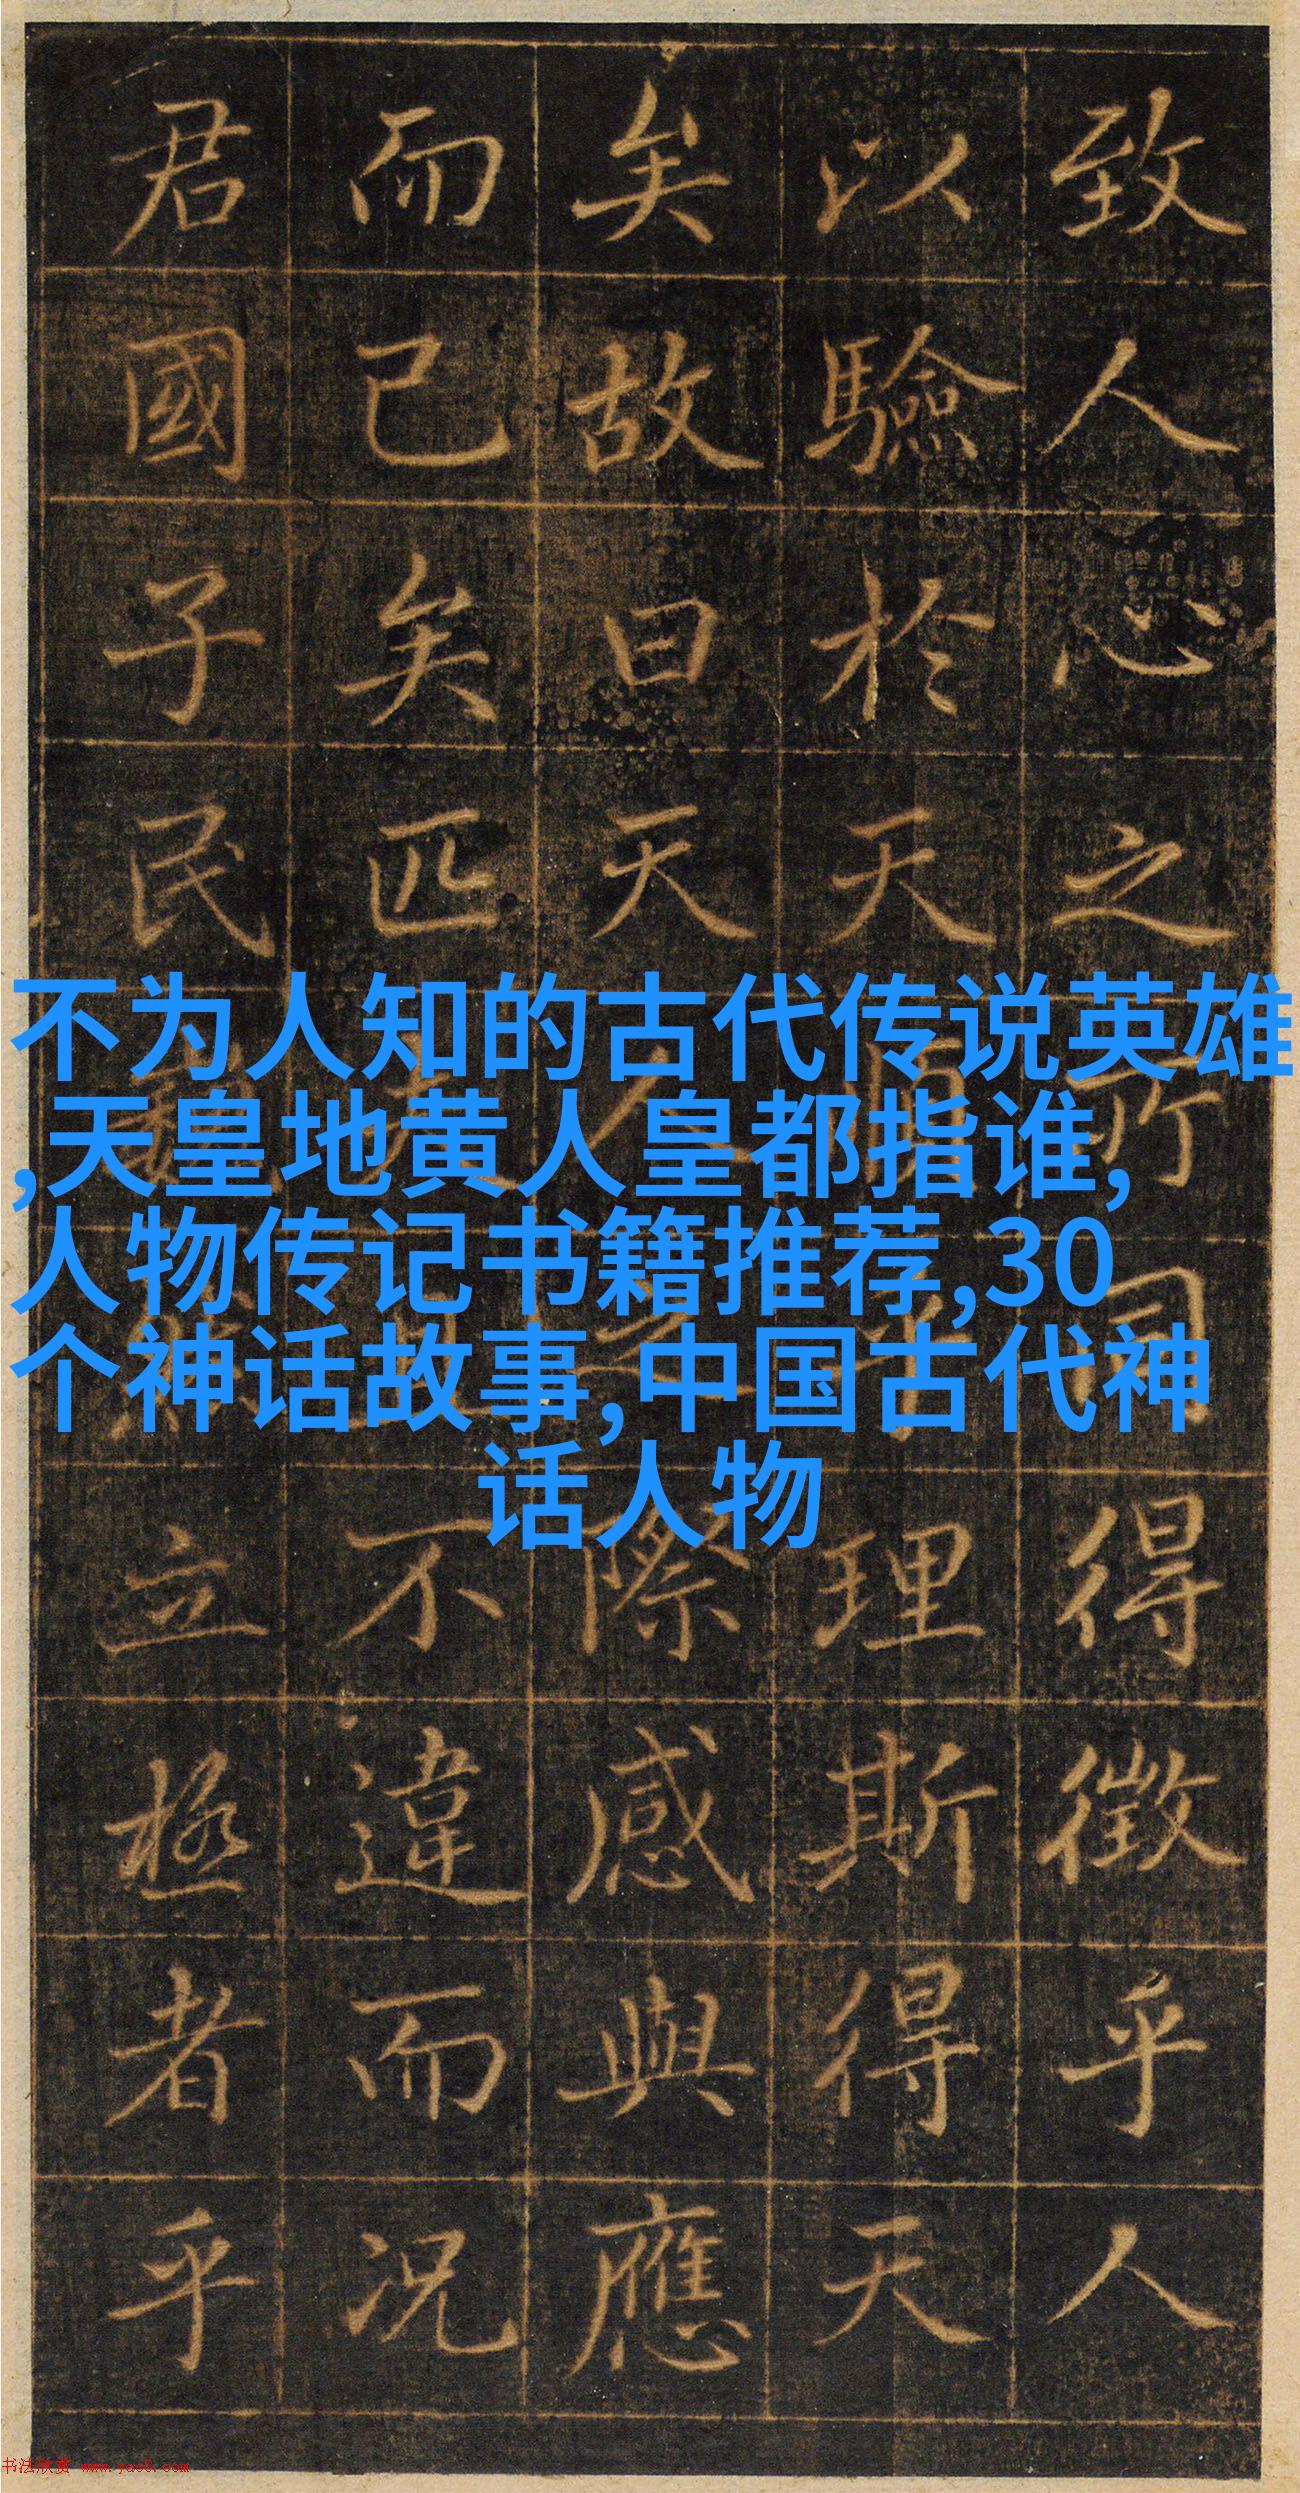 致人心之所同得徵乎人
以驗於天順乎理斯得天
矣故曰天人之際感與應
而已矣匹夫且不違而况
君國子民巍然立極者乎
不为人知的古代传说英雄
,天皇地黄人皇都指谁,
人物传记书籍推荐,30
个神话故事,中国古代神
话人物
书法欣赏 www.yac8.com